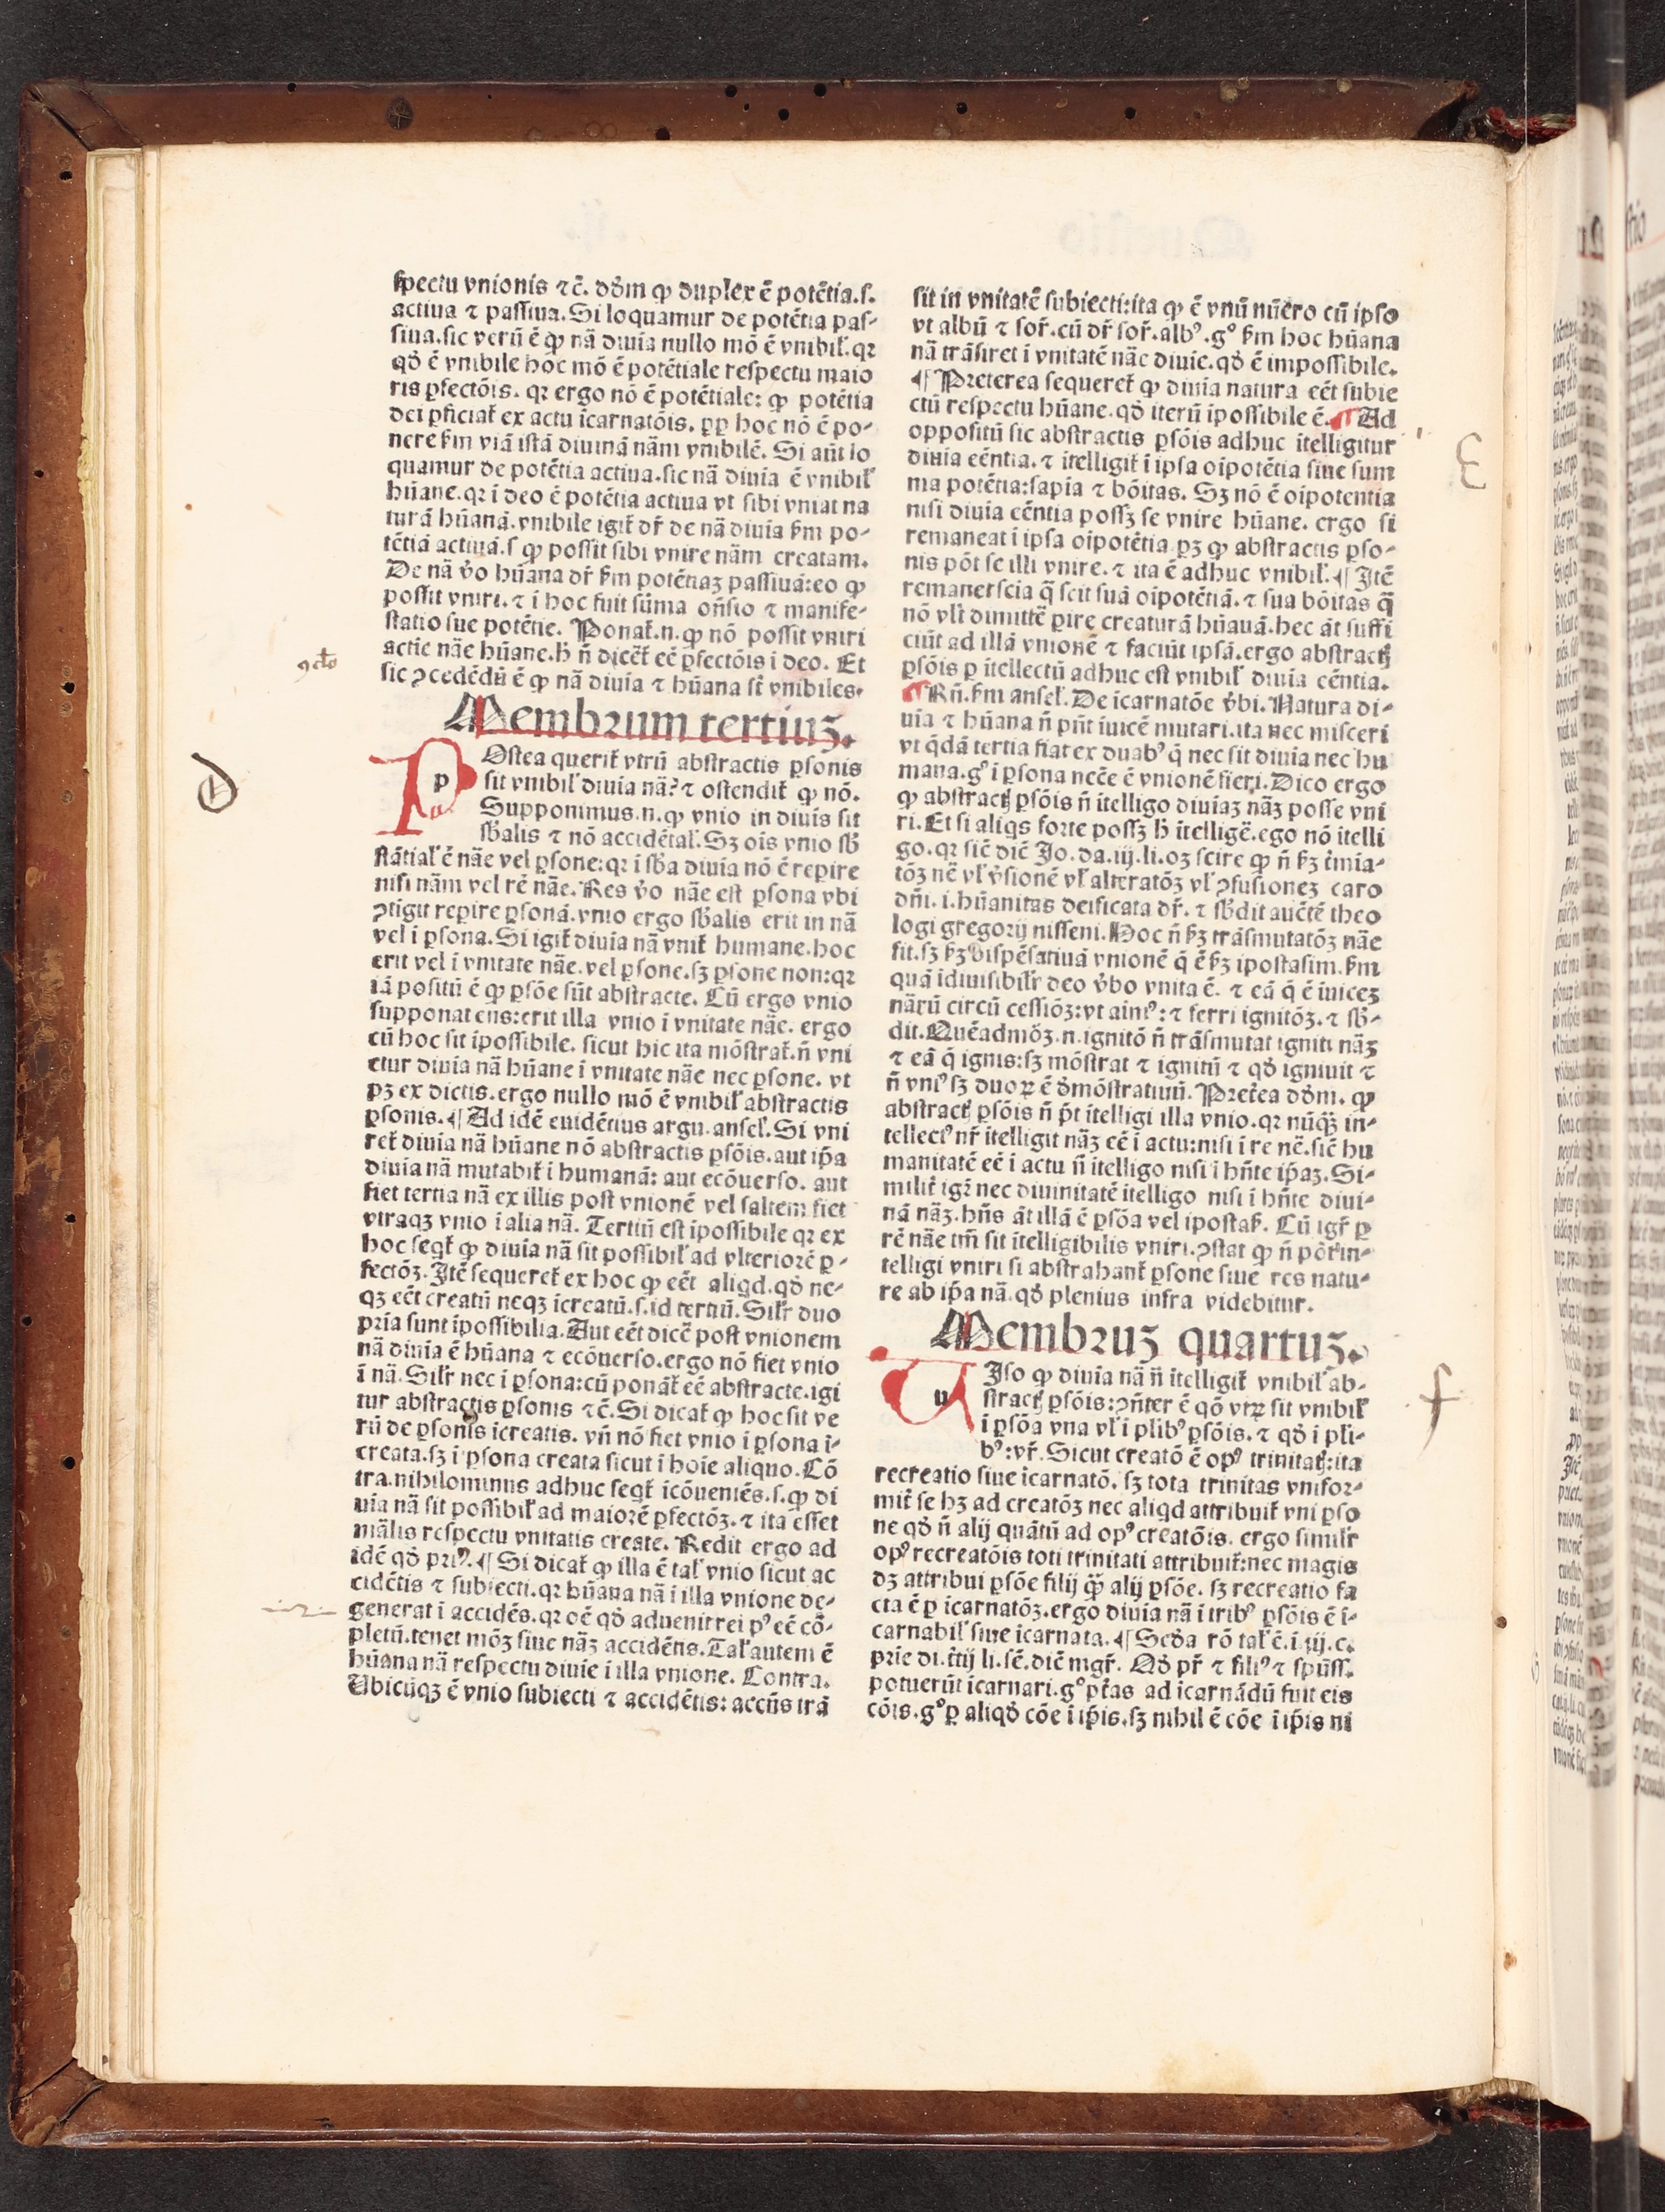 spectu vnionis ⁊c̄. dd̓m ꝙ duplex ē potētia.s.
actiua ⁊ passiua. Si loquamur de potētia pas⸗
siua.sic verū ē ꝙ nā diuia nullo mō ē vnibil̓.qꝛ
qd̓ ē vnibile hoc mō ē potētiale respectu maio
ris ꝑfectōis. qꝛ ergo nō ē potētiale: ꝙ potētia
dei ꝑficiat̓ ex actu icarnatōis. ꝓp hoc nō ē po⸗
nere ẜm viā istā diuinā nām vnibilē. Si aūt lo
quamur de potētia actiua.sic nā diuia ē vnibil̓
hūane.qꝛ i deo ē potētia actiua vt sibi vniat na
turā hūanā.vnibile igit̓ dr̄ de nā diuia ẜm po⸗
tētiā actiuā.s ꝙ possit sibi vnire nām creatam.
De nā v̓o hūana dr̄ ẜm potētiaꝫ passiuā:eo ꝙ
possit vniri.⁊ i hoc fuit sūma on̄sio ⁊ manife⸗
statio sue potētie. Ponat̓.n.ꝙ nō possit vniri
actie nāe hūane.h̄ n̄ dicēt̓ eē ꝑfectōis i deo. Et
sic ꝯcedēdū ē ꝙ nā diuia ⁊ hūana sūt vnibiles.
Membrum tertiuꝫ.
POstea querit̓ vtrū abstractis ꝑsonis
sit vnibil̓ diuia nā? ⁊ ostendit̓ ꝙ nō.
Supponimus.n.ꝙ vnio in diuis sit
sb̄alis ⁊ nō accidētal̓. Sꝫ ois vnio sb̄
stātial̓ ē nāe vel ꝑsone: qꝛ i sb̄a diuia nō ē reꝑire
nisi nām vel rē nāe. Res v̓o nāe est ꝑsona vbi
ꝯtigit reꝑire ꝑsonā.vnio ergo sb̄alis erit in nā
vel i ꝑsona. Si igit̓ diuia nā vnit̓ humane.hoc
erit vel i vnitate nāe.vel ꝑsone.sꝫ ꝑsone non:qꝛ
iā positū ē ꝙ ꝑsōe sūt abstracte. Cū ergo vnio
supponat ens:erit illa vnio i vnitate nāe. ergo
cū hoc sit ipossibile. sicut hic ita mōstrat̓.n̄ vni
etur diuia nā hūane i vnitate nāe nec ꝑsone. vt
pꝫ ex dictis.ergo nullo mō ē vnibil̓ abstractis
ꝑsonis. ¶ Ad idē euidētius argu.ansel̓. Si vni
ret̓ diuia nā hūane nō abstractis ꝑsōis.aut ip̄a
diuia nā mutabit̓ i humanā: aut ecōuerso. aut
fiet tertia nā ex illis post vnionē vel saltem fiet
vtraqꝫ vnio i alia nā. Tertiū est ipossibile qꝛ ex
hoc seqt̓ ꝙ diuia nā sit possibil̓ ad vlteriorē ꝑ⸗
fectōꝫ. Itē sequeret̓ ex hoc ꝙ eēt aliqd.qd̓ ne⸗
qꝫ eēt creatū neqꝫ icreatū.s.id tertiū. Sil̓r duo
pria sunt ipossibilia. Aut eēt dicē post vnionem
nā diuia ē hūana ⁊ ecōuerso.ergo nō fiet vnio
ī nā. Sil̓r nec i ꝑsona:cū ponāt̓ eē abstracte.igi
tur abstractis ꝑsonis ⁊c̄. Si dicat̓ ꝙ hoc sit ve
rū de ꝑsonis icreatis. vn̄ nō fiet vnio i ꝑsona i⸗
creata.sꝫ i ꝑsona creata sicut i hoie aliquo. Cō
tra.nihilominus adhuc seqt̓ icōueniēs.s.ꝙ di
uia nā sit possibil̓ ad maiorē ꝑfectōꝫ.⁊ ita esset
mālis respectu vnitatis create. Redit ergo ad
idē qd̓ priꝰ. ¶ Si dicat̓ ꝙ illa ē tal̓ vnio sicut ac
cidētis ⁊ subiecti.qꝛ hūana nā i illa vnione de⸗
generat i accidēs.qꝛ oē qd̓ aduenit rei pꝰ eē cō⸗
pletū.tenet mōꝫ siue nāꝫ accidētis. Tal̓ autem ē
hūana nā respectu diuie i illa vnione. Contra.
Ubicūqꝫ ē vnio subiecti ⁊ accidētis: accn̄s trā
sit in vnitatē subiecti:ita ꝙ ē vnū nūero cū ipso
vt albū ⁊ sor̄.cū dr̄ sor̄.albꝰ.gº ẜm hoc hūana
nā trāsiret i vnitatē nāe diuie.qd̓ ē impossibile.
¶ Preterea sequeret̓ ꝙ diuia natura eēt subie
ctū respectu hūane.qd̓ iterū ipossibile ē. ¶ Ad
oppositū sic abstractis ꝑsōis adhuc itelligitur
diuia eēntia.⁊ itelligit̓ i ipsa oipotētia siue sum
ma potētia:sapīa ⁊ bōitas. Sꝫ nō ē oipotentia
nisi diuia eēntia possꝫ se vnire hūane. ergo si
remaneat i ipsa oipotētia pꝫ ꝙ abstractis ꝑso⸗
nis pōt se illi vnire.⁊ ita ē adhuc vnibil̓. ¶ Itē
remanet scia q̄ scit suā oipotētiā.⁊ sua bōitas q̄
nō vlt̓ dimittē ꝑire creaturā hūauā.hec āt suffi
ciūt ad illā vnionē ⁊ faciūt ipsā.ergo abstractꝭ
ꝑsōis ꝑ itellectū adhuc est vnibil̓ diuia eēntia.
¶ Rn̄.ẜm ansel̓. De icarnatōe v̓bi. Natura di⸗
uia ⁊ hūana n̄ pn̄t iuicē mutari.ita nec misceri
vt q̄dā tertia fiat ex duabꝰ q̄ nec sit diuia nec hu
mana.gº i ꝑsona necē̄ ē vnionē fieri. Dico ergo
ꝙ abstractꝭ ꝑsōis n̄ itelligo diuiaꝫ nāꝫ posse vni
ri. Et si aliqs forte possꝫ h̄ itelligē.ego nō itelli
go.qꝛ sic̄ dic̄ Io.da.iij.li.oꝫ scire ꝙ n̄ ẜꝫ t̓mia⸗
tōꝫ nē vl̓ v̓sionē vl̓ alteratōꝫ vl̓ ꝯfusioneꝫ caro
dn̄i.i.hūanitas deificata dr̄. ⁊ sb̄dit auctē theo
logi gregorij nisseni. Hoc n̄ ẜꝫ trāsmutatōꝫ nāe
fit.sꝫ ẜꝫ dispēsatiuā vnionē q̄ ē ẜꝫ ipostasim.ẜm
quā idiuisibil̓r deo v̓bo vnita ē. ⁊ eā q̄ ē iuiceꝫ
nārū circū cessiōꝫ:vt ainiꝰ:⁊ ferri ignitōꝫ.⁊ sb̄⸗
dit. Quēadmōꝫ.n.ignitō n̄ trāsmutat igniti nāꝫ
⁊ eā q̄ ignis:sꝫ mōstrat ⁊ ignitū ⁊ qd̓ igniuit ⁊
n̄ vniꝰ sꝫ duoꝝ ē d̓mōstratiuū. Pret̓ea dd̓m. ꝙ
abstractꝭ ꝑsōis n̄ pt̄ itelligi illa vnio.qꝛ nūqꝫ̄ in⸗
tellectꝰ nr̄ itelligit nāꝫ eē i actu:nisi i re nē.sic̄ hu
manitatē eē i actu n̄ itelligo nisi i hn̄te ip̄aꝫ. Si⸗
milit̓ igꝫ nec diuinitatē itelligo nisi i hn̄te diui⸗
nā nāꝫ.hn̄s āt illā ē ꝑsōa vel ipostas̄. Cū igr̄ ꝑ
rē nāe tm̄ sit itelligibilis vniri.ꝯstat ꝙ n̄ pōt in⸗
telligi vniri si abstrahant̓ ꝑsone siue res natu⸗
re ab ip̄a nā.qd̓ plenius infra videbitur.
Membruꝫ quartuꝫ.
UIso ꝙ diuia nā n̄ itelligit̓ vnibil̓ ab⸗
stractꝭ ꝑsōis:ꝯn̄ter ē qō vtꝝ sit vnibil̓
i ꝑsōa vna vl̓ i plibꝰ ꝑsōis. ⁊ qd̓ i pli⸗
bꝰ:vr̄. Sicut creatō ē opꝰ trinitatꝭ:ita
recreatio siue icarnatō. sꝫ tota trinitas vnifor⸗
mit̓ se hꝫ ad creatōꝫ nec aliqd attribuit̓ vni ꝑso
ne qd̓ n̄ alij quātū ad opꝰ creatōis. ergo simil̓r
opꝰ recreatōis toti trinitati attribuit̓:nec magis
dꝫ attribui ꝑsōe filij q̄ꝫ alij ꝑsōe. sꝫ recreatio fa
cta ē ꝑ icarnatōꝫ.ergo diuia nā i tribꝰ ꝑsōis ē i⸗
carnabil̓ siue icarnata. ¶ Scd̓a rō tal̓ ē.i.iij.c.
prie di.t̓tij li.sē.dic̄ mgr̄. Qd̓ pr̄ ⁊ filiꝰ ⁊ spūss.
potuerūt icarnari.gº ptās ad icarnādū fuit eis
cōis.gº ꝑ aliqd̓ cōe i ip̄is.sꝫ nihil ē cōe i ip̄is ni